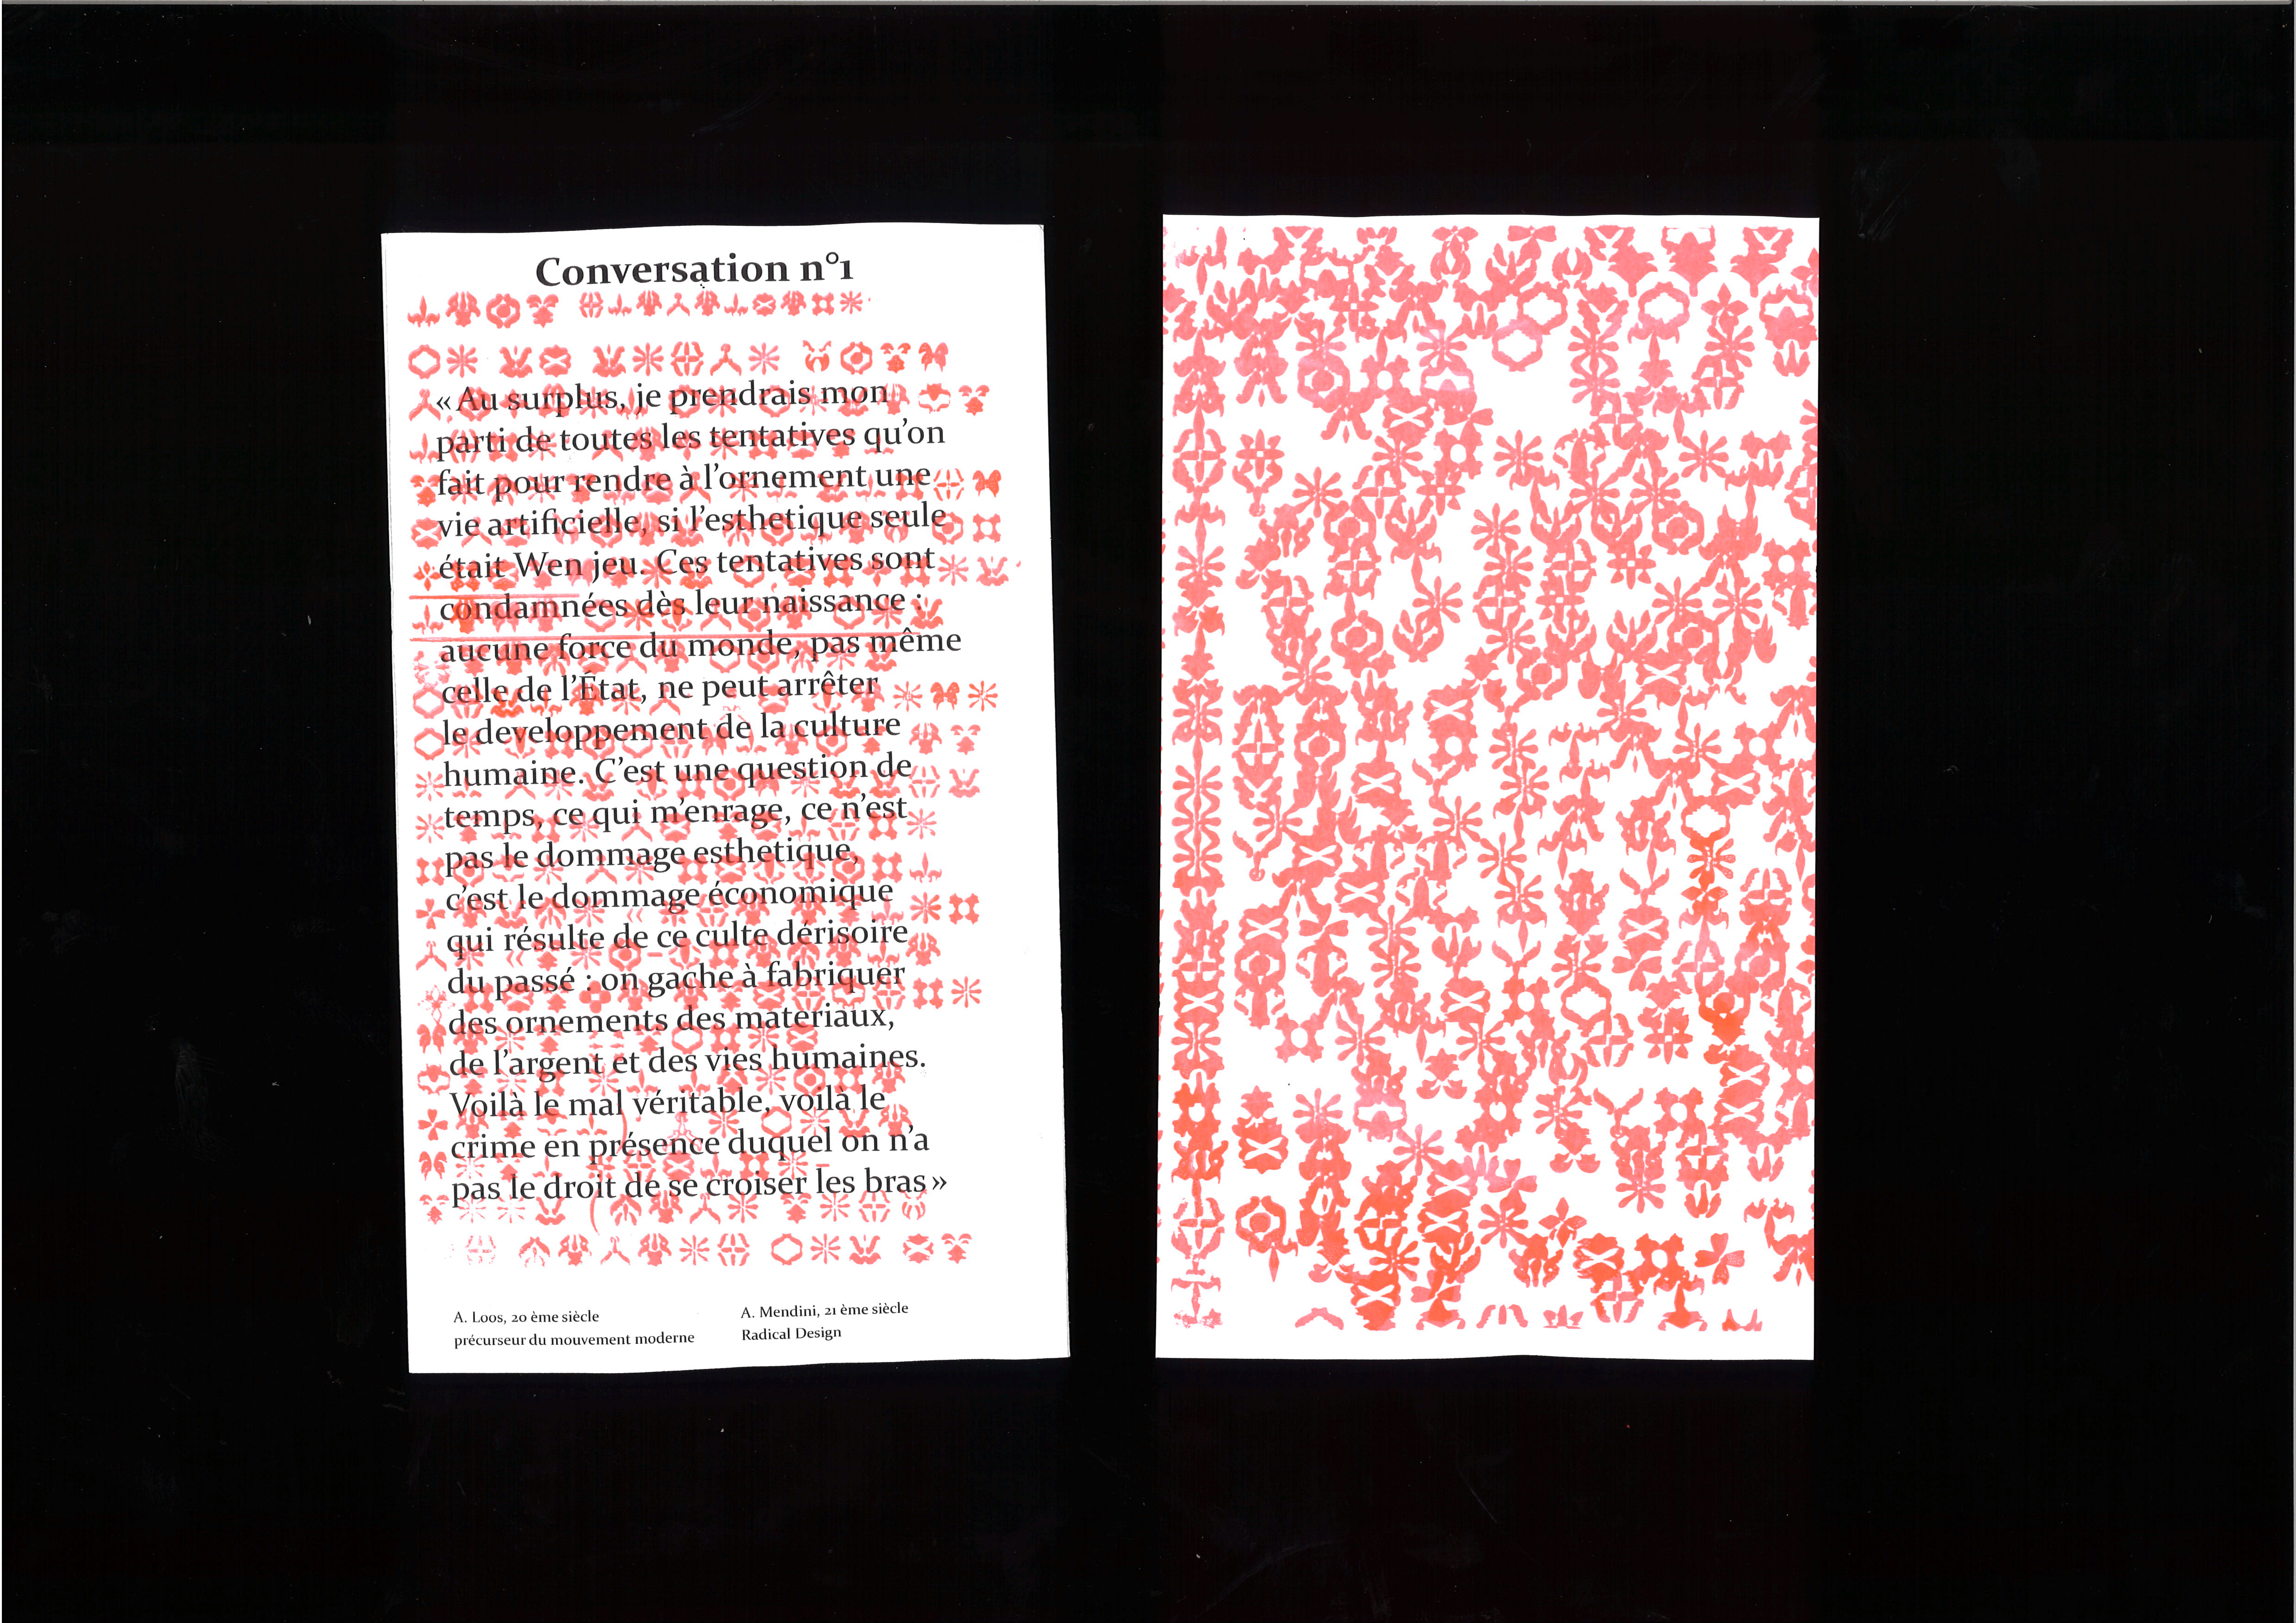 Conversation n°1
« Au surplus, je prendrais mon
parti de toutes les tentatives qu’on
fait pour rendre à l’ornement une
vie artificielle, si l’esthetique seule
était Wen jeu. Ces tentatives sont
condamnées dès leur naissance :
aucune force du monde, pas même
celle de l’État, ne peut arrêter
le developpement de la culture
humaine. C’est une question de
temps, ce qui m’enrage, ce n’est
pas le dommage esthetique,
c’est le dommage économique
qui résulte de ce culte dérisoire
du passé : on gache à fabriquer
des ornements des materiaux,
de l’argent et des vies humaines.
Voilà le mal véritable, voilà le
crime en présence duquel on n’a
pas le droit de se croiser les bras »
A. Loos, 20 ème siècle
précurseur du mouvement moderne
A. Mendini, 21 ème siècle
Radical Design